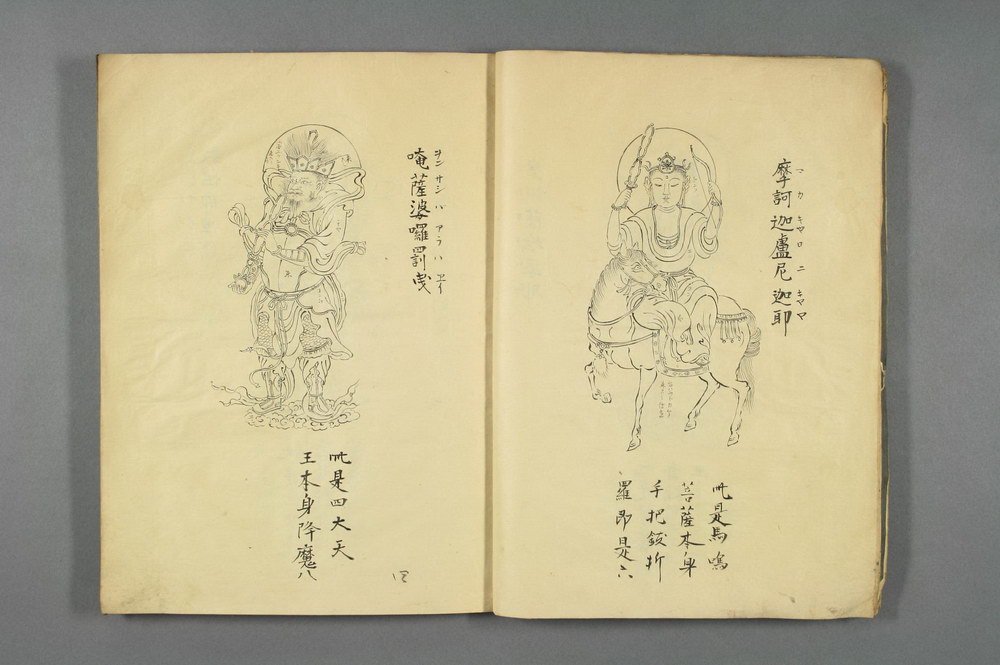 摩訶迦盧尼迦耶
マカキヤロニキヤヤ
此是馬鳴
菩薩本身
手把鈸折
羅即是六
唵薩婆囉罰曳
ヲンサンバアラハエイ
此是四大天
王本身降魔八
四